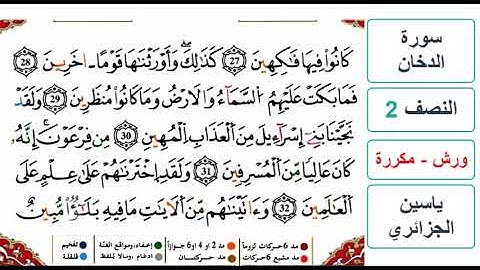 كَانُوا۟ فِيهَا فَٰكِهِينَ (27) كَذَٰلِكَۖ وَأَوْرَثْنَٰهَا قَوْمًا اٰخَرِينَ (28)
فَمَا بَكَتْ عَلَيْهِمُ اُ۬لسَّمَآءُ وَالَارْضُ وَمَا كَانُوا۟ مُنظَرِينَ (29) وَلَقَدْ
نَجَّيْنَا بَنِےٓ إِسْرَآءِيلَ مِنَ اَ۬لْعَذَابِ اِ۬لْمُهِينِ (30) مِن فِرْعَوْنَۖ إِنَّهُۥ
كَانَ عَالِيًا مِّنَ اَ۬لْمُسْرِفِينَ (31) وَلَقَدِ اِ۪خْتَرْنَٰهُمْ عَلَىٰ عِلْمٍ عَلَى
اَ۬لْعَٰلَمِينَ (32) وَءَاتَيْنَٰهُم مِّنَ اَ۬لَايَٰتِ مَا فِيهِ بَلَٰٓؤٌا۟ مُّبِينٌ
سورة
الدخان
النصف 2
ورش - مكررة
ياسين
الجزائري
مد 6 حركات لزوماً
مد 2 أو 4 أو 6 جوازاً
إخفاء، ومواقع الغنّة
تفخيم
مد مشبع 6 حركات
مد حركتان
ادغام، ومالا يُلفظ
قلقلة